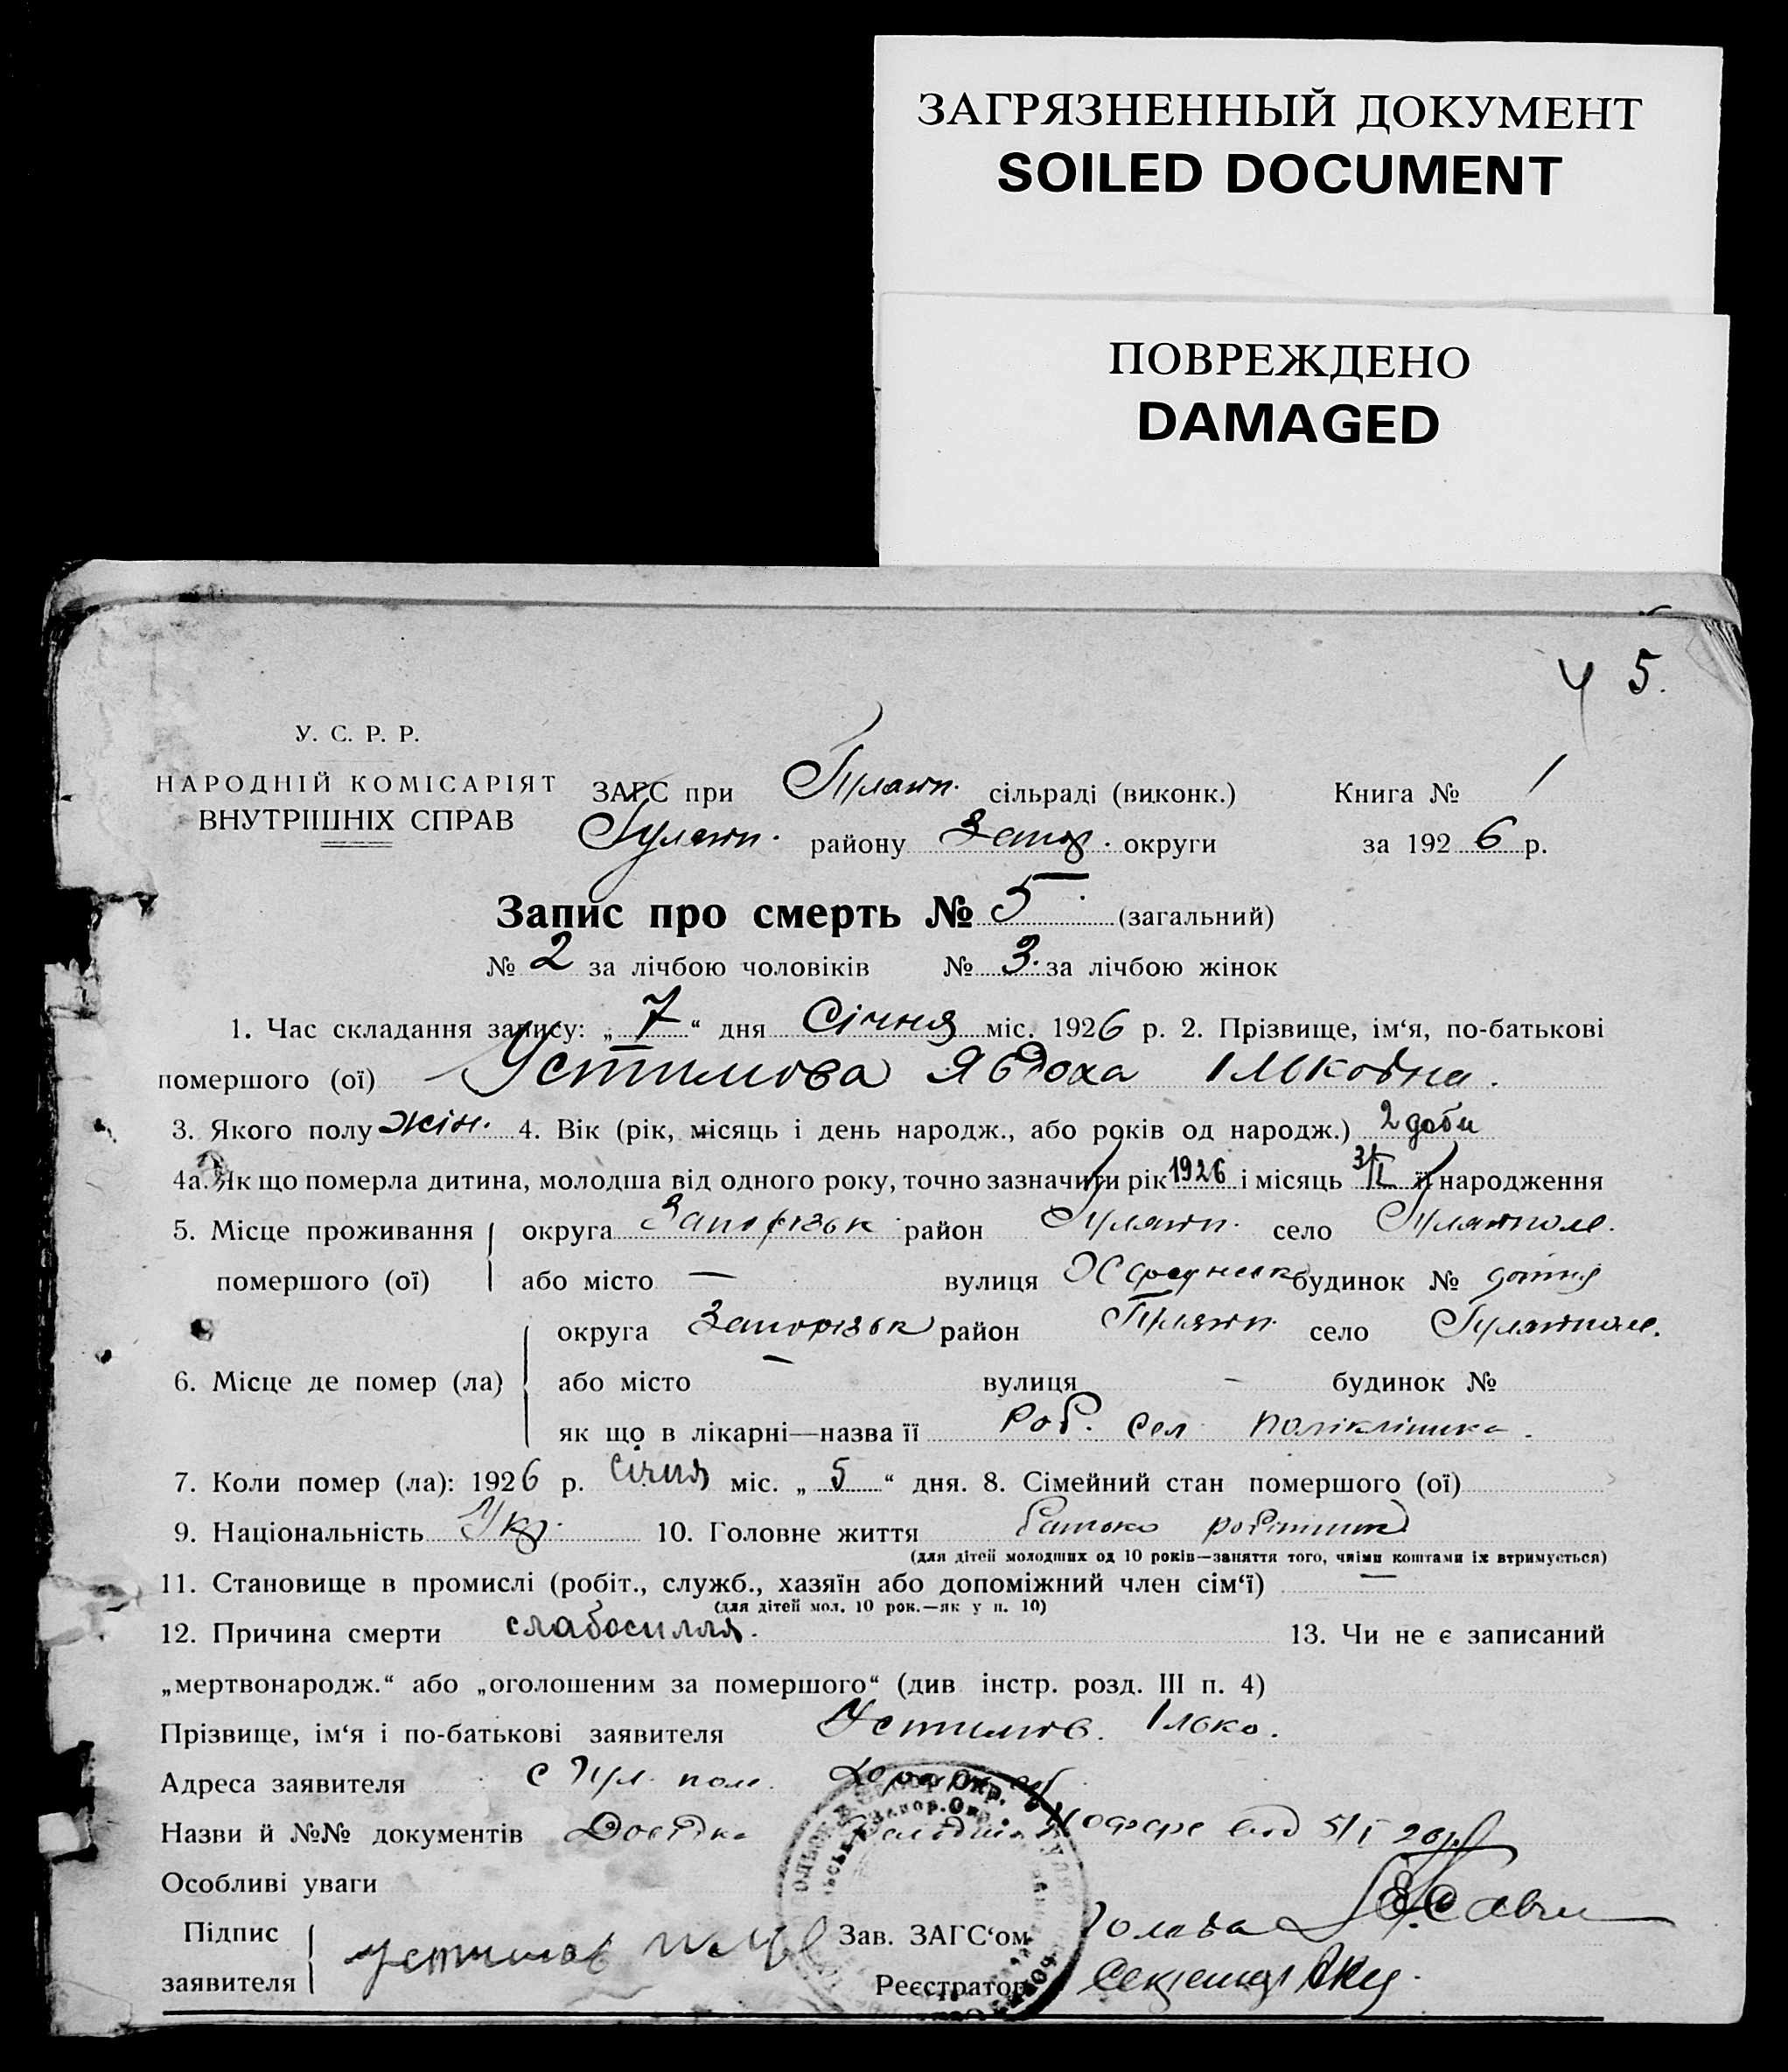 ЗАГРЯЗНЕННЫЙ ДОКУМЕНТ
SOILED DOCUMENT
ПОВРЕЖДЕНО
DAMAGED
5.
У. С. Р. Р.
НАРОДНІЙ КОМІСАРІЯТ
ВНУТРІШНІХ СПРАВ
ЗАГС при Гуляйп. сільраді (виконк.) Книга № 1
Гуляйп. району Запор. округи за 1926 р.
Запис про смерть № 5 (загальний)
№ 2 за лічбою чоловіків № 3. за лічбою жінок
1. Час складання запису: „7“ дня Січня міс. 1926 р. 2. Прізвище, ім‘я, по-батькові
помершого (ої) Устимова Явдоха Ільковна.
3. Якого полу жін. 4. Вік (рік, місяць і день народж., або років од народж.) 2 доби
4а. Як що померла дитина, молодша від одного року, точно зазначити рік 1926 і місяць 3/I її народження
5. Місце проживання округа Запорізьк район Гуляйп. село Гуляйполе.
помершого (ої) або місто — вулиця будинок №
округа Запорізьк район Гуляйп. село Гуляйполе.
6. Місце де помер (ла) або місто — вулиця — будинок №
як що в лікарні—назва її Роб. сел. поліклініка.
7. Коли помер (ла): 1926 р. Січня міс. „5“ дня. 8. Сімейний стан помершого (ої)
9. Національність Укр. 10. Головне життя батько робітник
(для дітей молодших од 10 років—заняття того, чиїми коштами їх втримується)
11. Становище в промислі (робіт., служб., хазяїн або допоміжний член сім‘ї) —
(для дітей мол. 10 рок.—як у п. 10)
12. Причина смерти слабосилля. 13. Чи не є записаний
„мертвонародж.“ або „оголошеним за помершого“ (див інстр. розд. III п. 4)
Прізвище, ім‘я і по-батькові заявителя Устимов. Ілько.
Адреса заявителя с Гул. пол.
Назви й №№ документів Довідка 5/I
Особливі уваги
Підпис заявителя Устимов Зав. ЗАГС‘ом Голова
Реєстратор Секретар